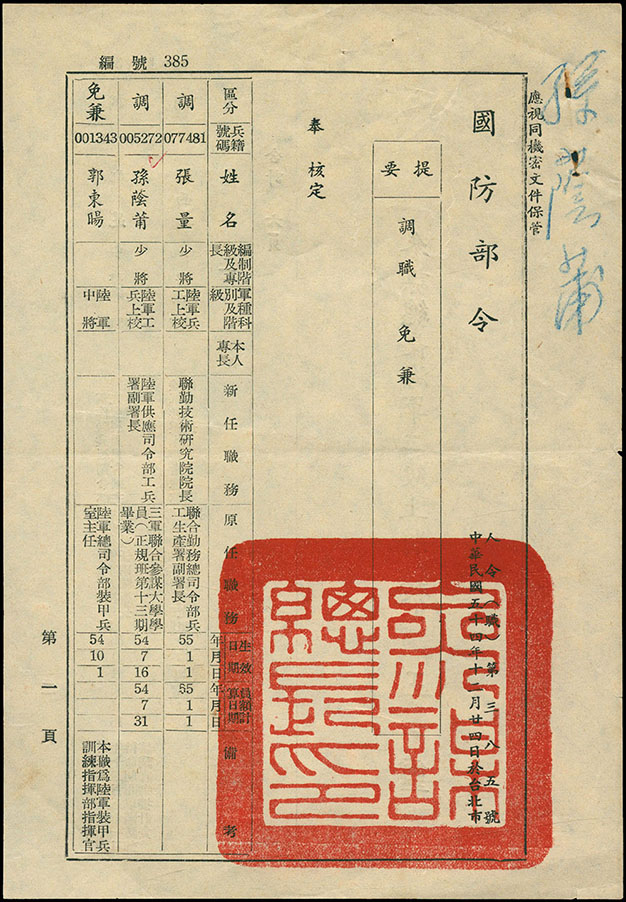 編號 385
孫蔭
應視同機密文件保管
國防部令
人令(職)第三八五號
中華民國五十四年十二月廿四日於台北市
提要
調職免兼
奉核定
區分
兵籍號碼
姓名
編制階級及專長
軍種科別及階級
本人專長
新任職務
原任職務
生效日期
年月日
員額計算日期
年月日
備考
調
077481
張量
少將
陸軍工兵上校
聯勤技術研究院院長
聯合勤務總司令部兵工生產署副署長
55
1
1
55
1
1
調
005272
孫蔭莆
少將
陸軍工兵上校
陸軍供應司令部工兵署副署長
三軍聯合參謀大學學員(正規班第十三期畢業)
54
7
16
54
7
31
免兼
001343
郭東暘
陸軍中將
陸軍總司令部裝甲兵室主任
54
10
1
本職為陸軍裝甲兵訓練指揮部指揮官
第一頁